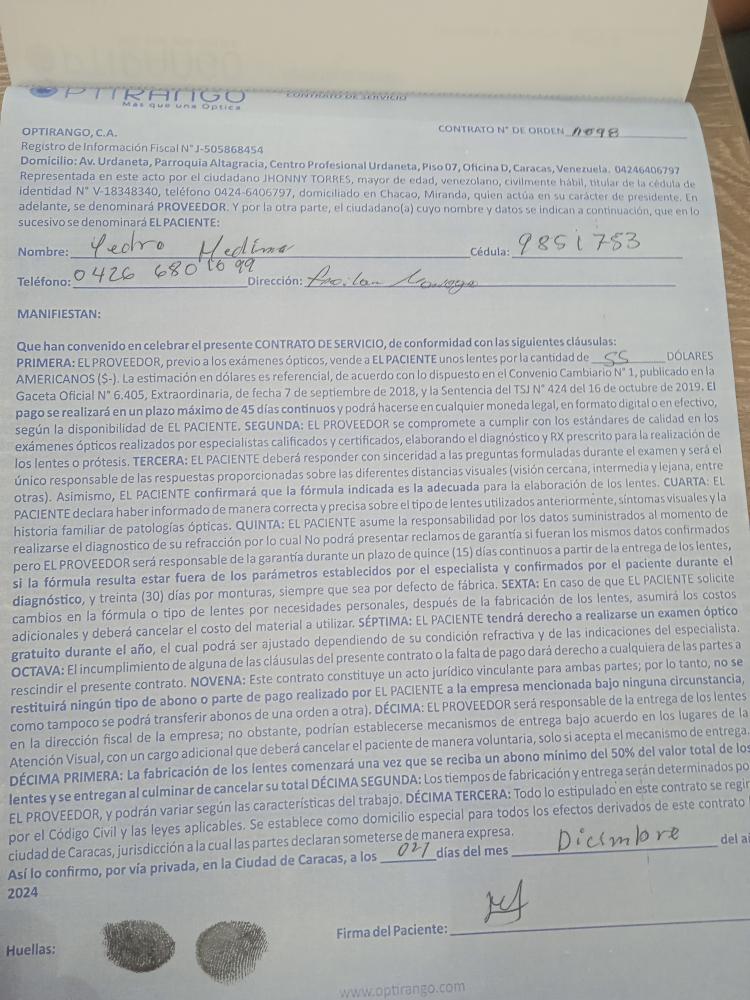 OPTIRANGO
Más que una Óptica
CONTRATO DE SERVICIO
OPTIRANGO, C.A.
CONTRATO N° DE ORDEN 11098
Registro de Información Fiscal N° J-505868454
Domicilio: Av. Urdaneta, Parroquia Altagracia, Centro Profesional Urdaneta, Piso 07, Oficina D, Caracas, Venezuela. 04246406797
Representada en este acto por el ciudadano JHONNY TORRES, mayor de edad, venezolano, civilmente hábil, titular de la cédula de
identidad N° V-18348340, teléfono 0424-6406797, domiciliado en Chacao, Miranda, quien actúa en su carácter de presidente. En
adelante, se denominará PROVEEDOR. Y por la otra parte, el ciudadano(a) cuyo nombre y datos se indican a continuación, que en lo
sucesivo se denominará EL PACIENTE:
Nombre: Pedro Medina Cédula: 9851753
Teléfono: 0426 680 1099 Dirección:
MANIFIESTAN:
Que han convenido en celebrar el presente CONTRATO DE SERVICIO, de conformidad con las siguientes cláusulas:
PRIMERA: EL PROVEEDOR, previo a los exámenes ópticos, vende a EL PACIENTE unos lentes por la cantidad de 55 DÓLARES
AMERICANOS ($-). La estimación en dólares es referencial, de acuerdo con lo dispuesto en el Convenio Cambiario N° 1, publicado en la
Gaceta Oficial N° 6.405, Extraordinaria, de fecha 7 de septiembre de 2018, y la Sentencia del TSJ N° 424 del 16 de octubre de 2019. El
pago se realizará en un plazo máximo de 45 días continuos y podrá hacerse en cualquier moneda legal, en formato digital o en efectivo,
según la disponibilidad de EL PACIENTE. SEGUNDA: EL PROVEEDOR se compromete a cumplir con los estándares de calidad en los
exámenes ópticos realizados por especialistas calificados y certificados, elaborando el diagnóstico y RX prescrito para la realización de
los lentes o prótesis. TERCERA: EL PACIENTE deberá responder con sinceridad a las preguntas formuladas durante el examen y será el
único responsable de las respuestas proporcionadas sobre las diferentes distancias visuales (visión cercana, intermedia y lejana, entre
otras). Asimismo, EL PACIENTE confirmará que la fórmula indicada es la adecuada para la elaboración de los lentes. CUARTA: EL
PACIENTE declara haber informado de manera correcta y precisa sobre el tipo de lentes utilizados anteriormente, síntomas visuales y la
historia familiar de patologías ópticas. QUINTA: EL PACIENTE asume la responsabilidad por los datos suministrados al momento de
realizarse el diagnostico de su refracción por lo cual No podrá presentar reclamos de garantía si fueran los mismos datos confirmados
pero EL PROVEEDOR será responsable de la garantía durante un plazo de quince (15) días continuos a partir de la entrega de los lentes,
si la fórmula resulta estar fuera de los parámetros establecidos por el especialista y confirmados por el paciente durante el
diagnóstico, y treinta (30) días por monturas, siempre que sea por defecto de fábrica. SEXTA: En caso de que EL PACIENTE solicite
cambios en la fórmula o tipo de lentes por necesidades personales, después de la fabricación de los lentes, asumirá los costos
adicionales y deberá cancelar el costo del material a utilizar. SÉPTIMA: EL PACIENTE tendrá derecho a realizarse un examen óptico
gratuito durante el año, el cual podrá ser ajustado dependiendo de su condición refractiva y de las indicaciones del especialista.
OCTAVA: El incumplimiento de alguna de las cláusulas del presente contrato o la falta de pago dará derecho a cualquiera de las partes a
rescindir el presente contrato. NOVENA: Este contrato constituye un acto jurídico vinculante para ambas partes; por lo tanto, no se
restituirá ningún tipo de abono o parte de pago realizado por EL PACIENTE a la empresa mencionada bajo ninguna circunstancia,
como tampoco se podrá transferir abonos de una orden a otra). DÉCIMA: EL PROVEEDOR será responsable de la entrega de los lentes
en la dirección fiscal de la empresa; no obstante, podrían establecerse mecanismos de entrega bajo acuerdo en los lugares de la
Atención Visual, con un cargo adicional que deberá cancelar el paciente de manera voluntaria, solo si acepta el mecanismo de entrega.
DÉCIMA PRIMERA: La fabricación de los lentes comenzará una vez que se reciba un abono mínimo del 50% del valor total de los
lentes y se entregan al culminar de cancelar su total DÉCIMA SEGUNDA: Los tiempos de fabricación y entrega serán determinados po
EL PROVEEDOR, y podrán variar según las características del trabajo. DÉCIMA TERCERA: Todo lo estipulado en este contrato se regir
por el Código Civil y las leyes aplicables. Se establece como domicilio especial para todos los efectos derivados de este contrato l
ciudad de Caracas, jurisdicción a la cual las partes declaran someterse de manera expresa.
Así lo confirmo, por vía privada, en la Ciudad de Caracas, a los días del mes Diciembre del a
2024
Huellas: Firma del Paciente:
www.optirango.com